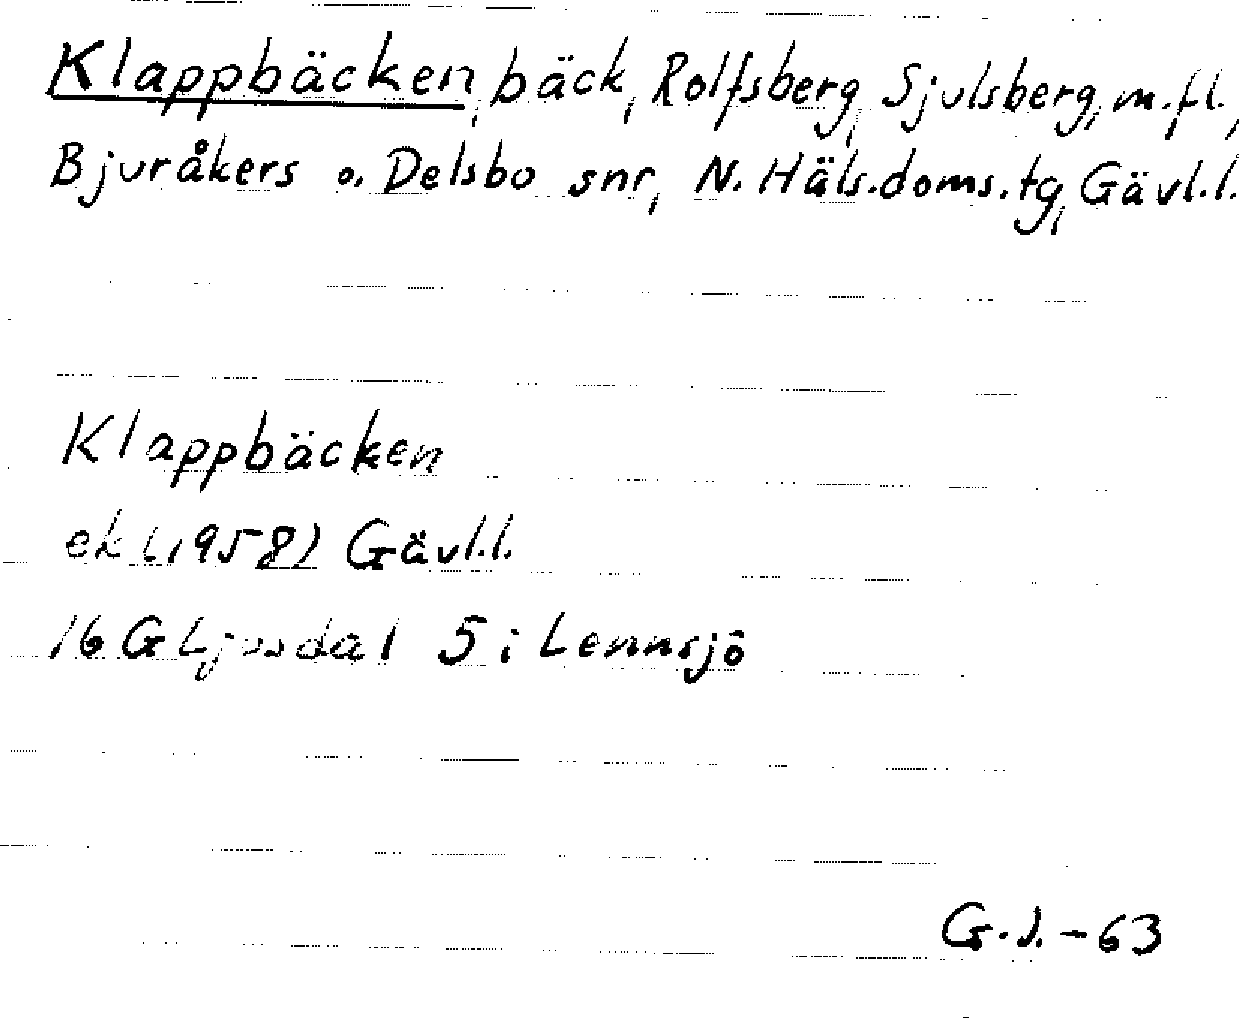 Klappbäcken, bäck, Rolfsberg, Sjulsberg, m.fl.,
Bjuråkers o. Delsbo snr, N. Häls.doms.tg, Gävl.l.
Klappbäcken
ek (1958) Gävl.l.
16 G Ljusdal 5 i Lennsjö
G.J. - 63